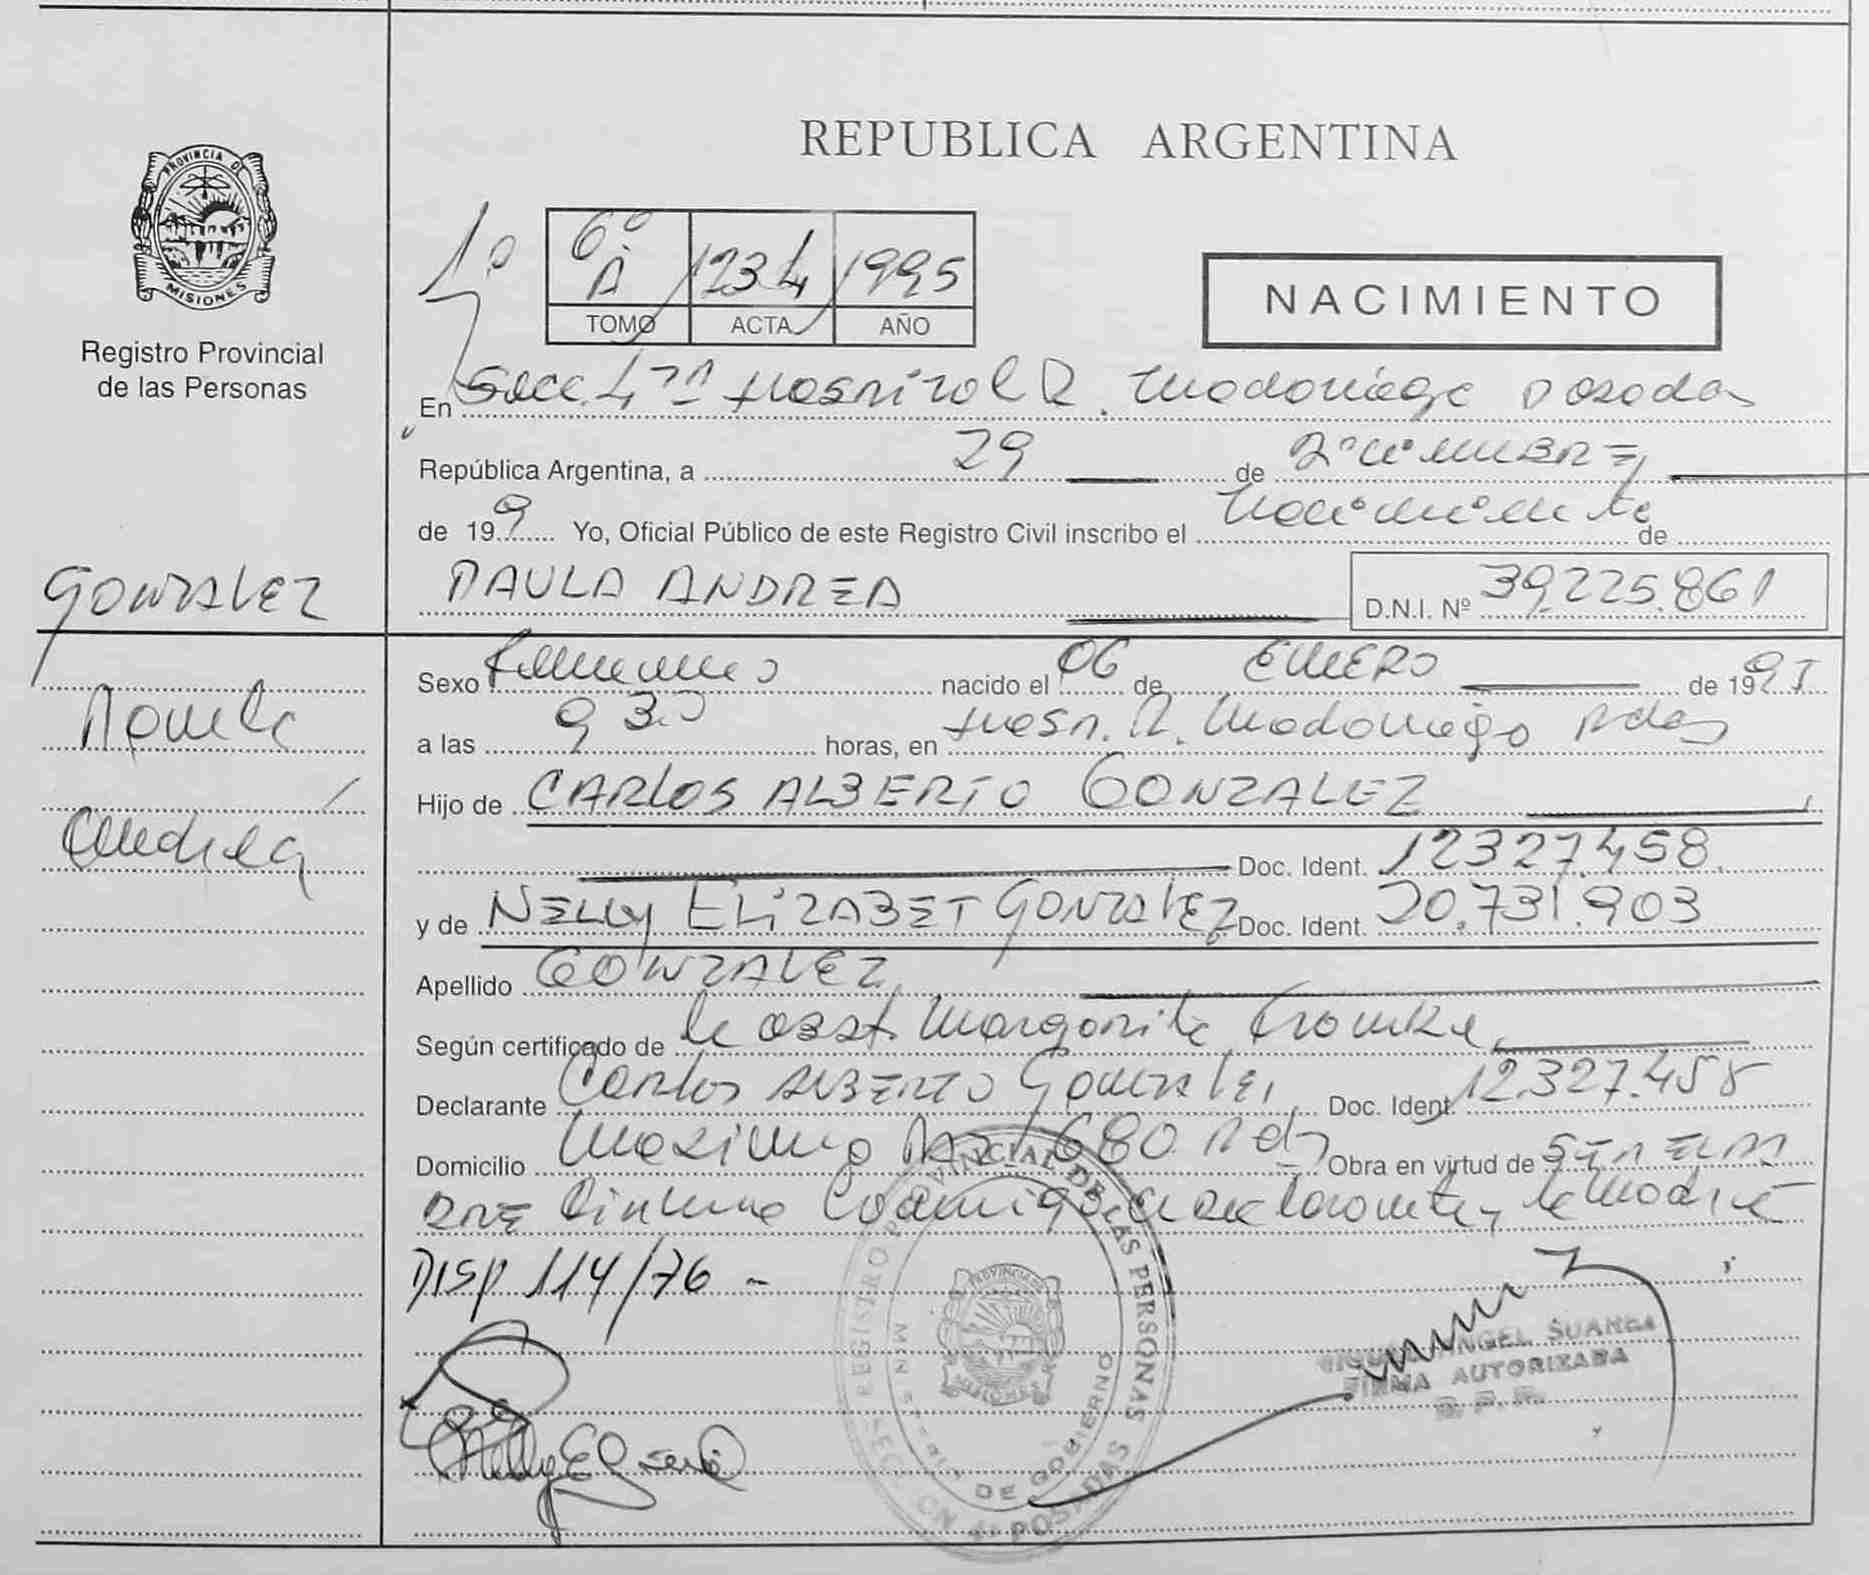 REPUBLICA ARGENTINA
PROVINCIA DE
MISIONES
Registro Provincial
de las Personas
1º
6º A 1234 1995
TOMO ACTA AÑO
NACIMIENTO
En Secc. 4ta Hospital R. Madariaga Posadas
República Argentina, a 29 de Diciembre
de 199 Yo, Oficial Público de este Registro Civil inscribo el Nacimiento de
GONZALEZ
PAULA ANDREA
D.N.I. Nº 39.225.861
Paula
Andrea
Sexo Femenino nacido el 06 de ENERO de 199
a las 9 30 horas, en Hosp. R. Madariaga Pdas
Hijo de CARLOS ALBERTO GONZALEZ
Doc. Ident. 12327.458
y de NELLY ELIZABET GONZALEZ Doc. Ident. 20.731.903
Apellido GONZALEZ
Según certificado de la obst. Margarita
Declarante Carlos ALBERTO Gonzalez Doc. Ident. 12.327.458
Domicilio Maximo Paz 680 Pdas Obra en virtud de SER EL PA
DRE Firman Conmigo el declarante y la madre
DISP 114/76 -
REGISTRO PROVINCIAL DE LAS PERSONAS
MINISTERIO DE GOBIERNO
SECCION 4a POSADAS
PROVINCIA DE
MISIONES
MIGUEL ANGEL SUAREZ
FIRMA AUTORIZADA
R. P. P.
Nelly E G